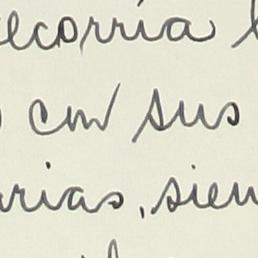 recorría
con sus
arias, siem